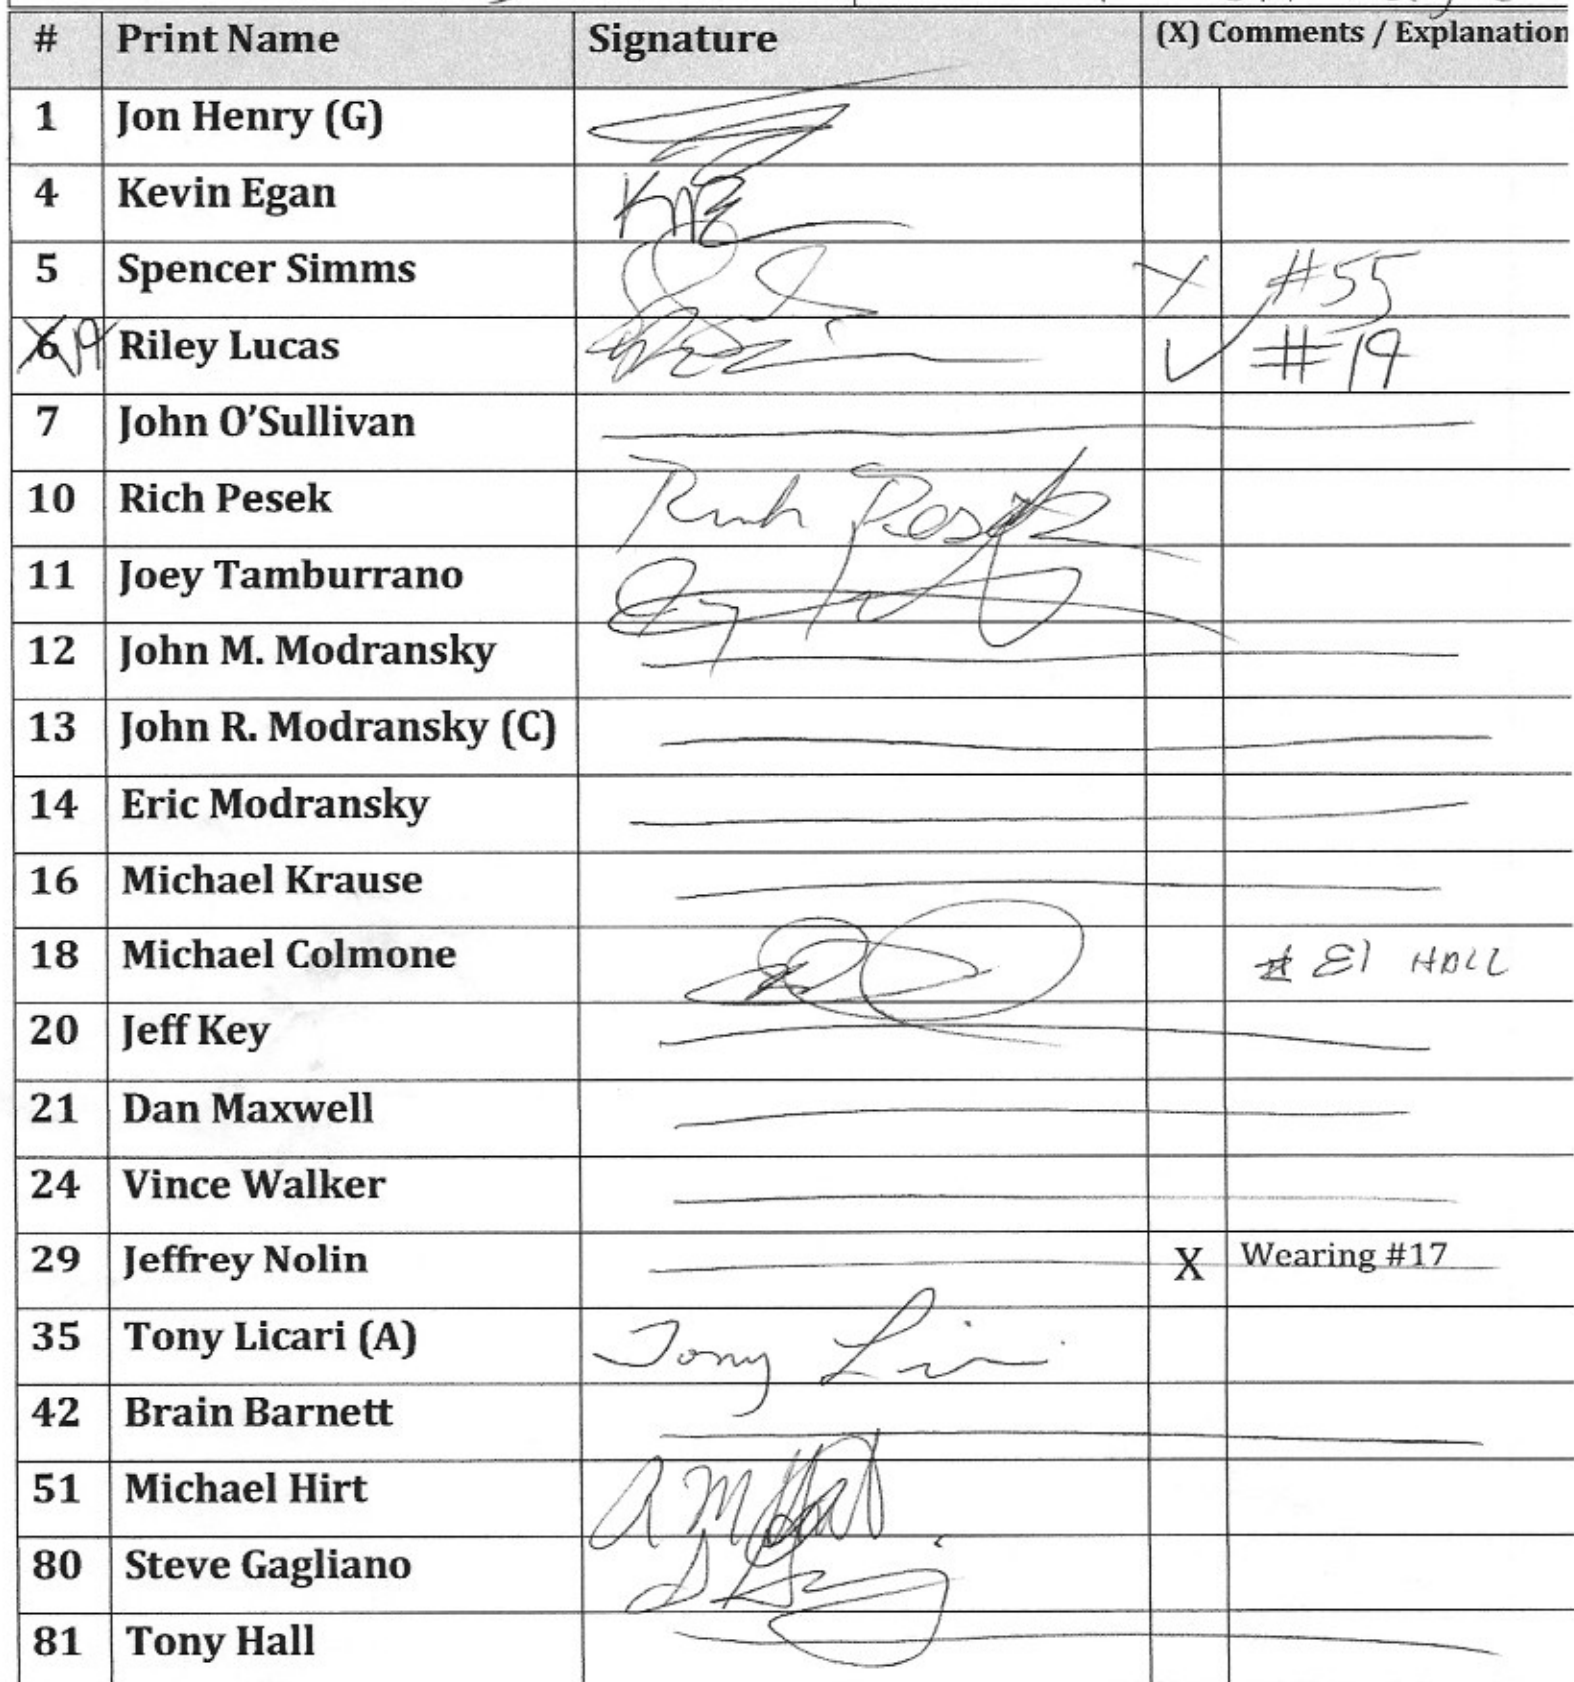 # Print Name Signature (X) Comments / Explanation
1 Jon Henry (G)
4 Kevin Egan
5 Spencer Simms X #55
6 19 Riley Lucas ✓ #19
7 John O’Sullivan
10 Rich Pesek Rich Pesek
11 Joey Tamburrano
12 John M. Modransky
13 John R. Modransky (C)
14 Eric Modransky
16 Michael Krause
18 Michael Colmone # 81 HALL
20 Jeff Key
21 Dan Maxwell
24 Vince Walker
29 Jeffrey Nolin X Wearing #17
35 Tony Licari (A) Tony
42 Brain Barnett
51 Michael Hirt
80 Steve Gagliano
81 Tony Hall